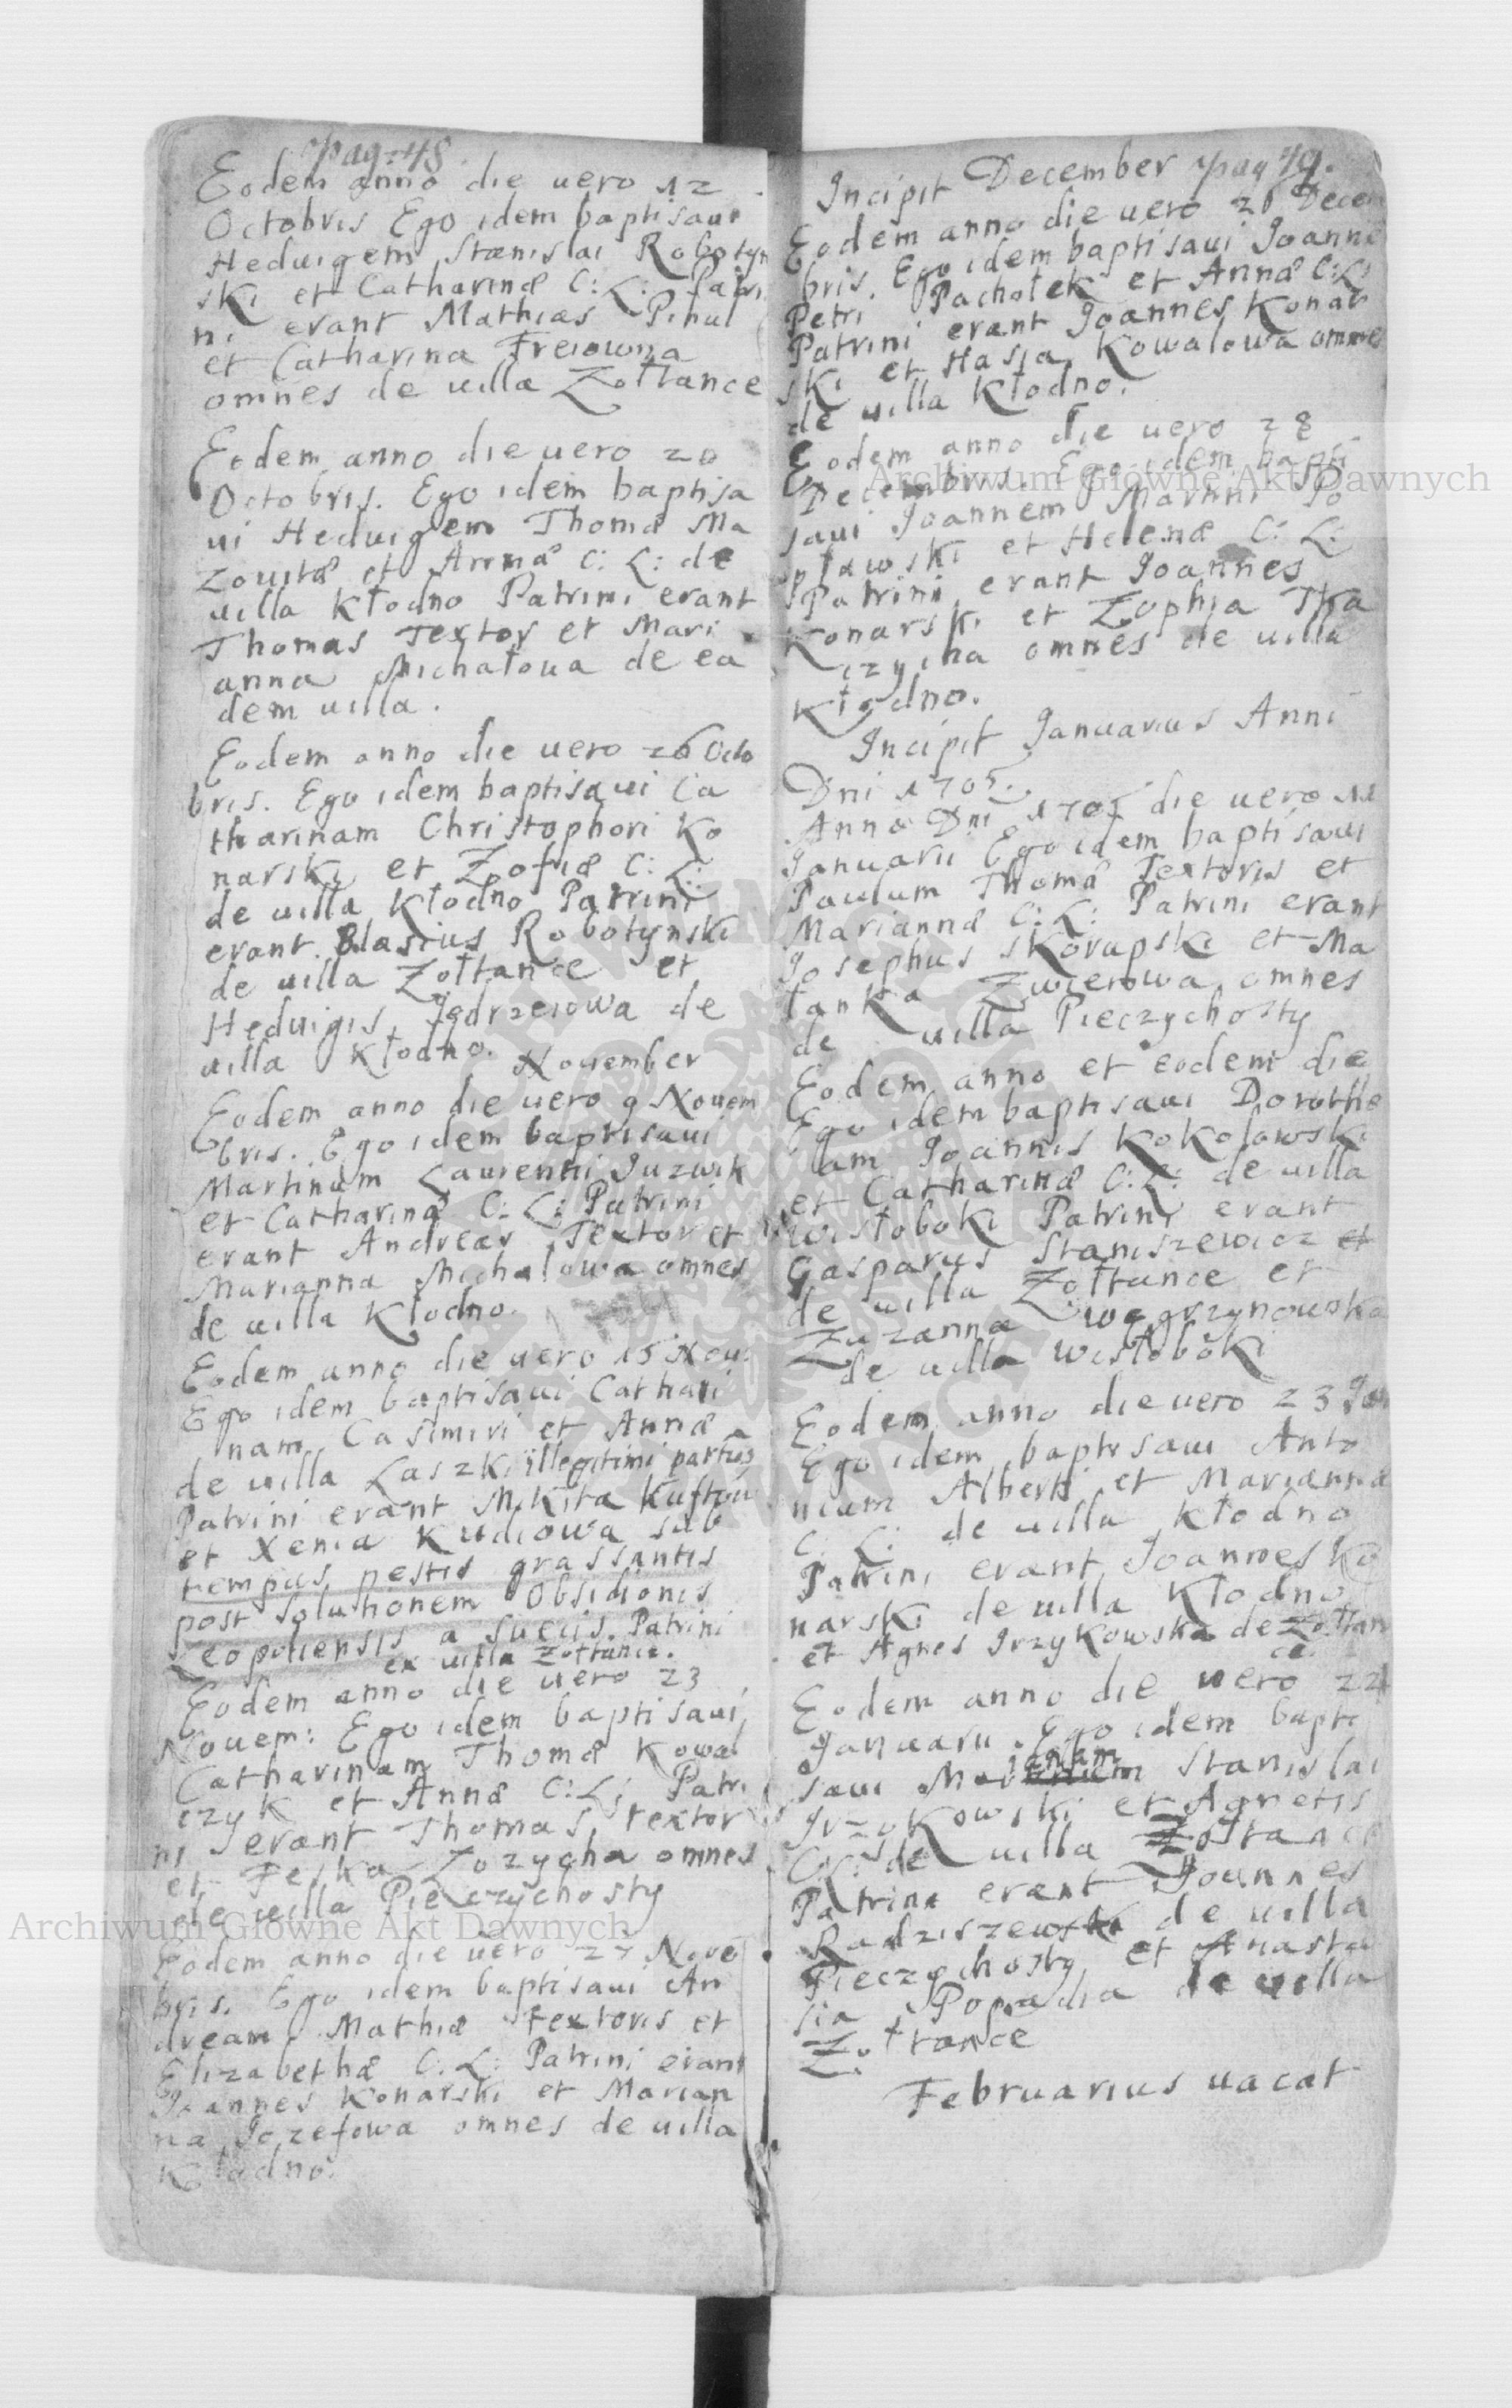 pag: 48
Eodem anno die uero 12
Octobris Ego idem baptisaui
Heduigem Stanislai Robotyn
ski et Catharinæ C: L: Patri
ni erant Mathias Pihul
et Catharina Freiowna
omnes de uilla Zołtance
Eodem anno die uero 20
Octobris. Ego idem baptisa
ui Heduigem Thomæ Ma
zouitæ et Annæ C: L: de
uilla Kłodno Patrini erant
Thomas Textor et Mari
anna Michałoua de ea
dem uilla.
Eodem anno die uero 26 Octo
bris. Ego idem baptisaui Ca
tharinam Christophori Ko
narski et Zofiæ C: L:
de uilla Kłodno Patrini
erant Blasius Robotynski
de uilla Zołtance et
Heduigis Jędrzeiowa de
uilla Kłodno.
Nouember
Eodem anno die uero 9 Nouem
bris. Ego idem baptisaui
Martinum Laurentii Juzwik
et Catharinæ C: L: Patrini
erant Andreas Textor et
Marianna Michałowa omnes
de uilla Kłodno.
Eodem anno die uero 15 Nou:
Ego idem baptisaui Cathari
nam Casimiri et Annæ
de uilla Laszki illegitimi partus
Patrini erant Mikita
et Xenia Kudiowa sub
tempus pestis grassantis
post solutionem Obsidionis
Leopoliensis a Suecis. Patrini
ex uilla Zołtance.
Eodem anno die uero 23
Nouem: Ego idem baptisaui
Catharinam Thomæ Kowal
czyk et Annæ C: L: Patri
ni erant Thomas textor
et Feska Zozycha omnes
de uilla Pieczychosty
Eodem anno die uero 27 Noue
bris. Ego idem baptisaui An
dream Mathiæ textoris et
Elizabethæ C: L: Patrini erant
Joannes Konarski et Marian
na Jozefowa omnes de uilla
Kłodno.
December pag 49.
Incipit
Eodem anno die uero 26 Decem
bris. Ego idem baptisaui Joanne
Petri Pachołek et Annæ C: L:
Patrini erant Joannes Konar
ski et Hasia Kowalowa omnes
de uilla Kłodno.
Eodem anno die uero 28
Decembris. Ego idem bapti
saui Joannem Martini Po
pławski et Helenæ C: L:
Patrini erant Joannes
Konarski et Zophia Tka
czycha omnes de uilla
Kłodno.
Incipit Januarius Anni
Dni 1705.
Anno Dni 1705 die uero 11
Januarii Ego idem baptisaui
Paulum Thomæ Textoris et
Mariannæ C: L: Patrini erant
Josephus Skorupski et Ma
łanka Zwierowa omnes
de uilla Pieczychosty
Eodem anno et eodem die
Ego idem baptisaui Dorothe
am Joannis Kokołowski
et Catharinæ C: L: de uilla
Wisłoboki Patrini erant
Gasparus Staniszewicz et
de uilla Zołtance et
Zuzanna Węgrzynowska
de uilla Wisłoboki
Eodem anno die uero 23 Jan
Ego idem baptisaui Anto
nium Alberti et Mariannæ
C: L: de uilla Kłodno
Patrini erant Joannes Ko
narski de uilla Kłodno
et Agnes Irzykowska de Zołtan
ce.
Eodem anno die uero 24
Januarii. Ego idem bapti
saui Stanislai
Irzykowski et Agnetis
C: L: de uilla Zołtance
Patrini erant Joannes
Radziszewski de uilla
Pieczychosty et Anasta
sia Popadia de uilla
Zołtance
Februarius uacat
Archiwum Główne Akt Dawnych
Archiwum Główne Akt Dawnych